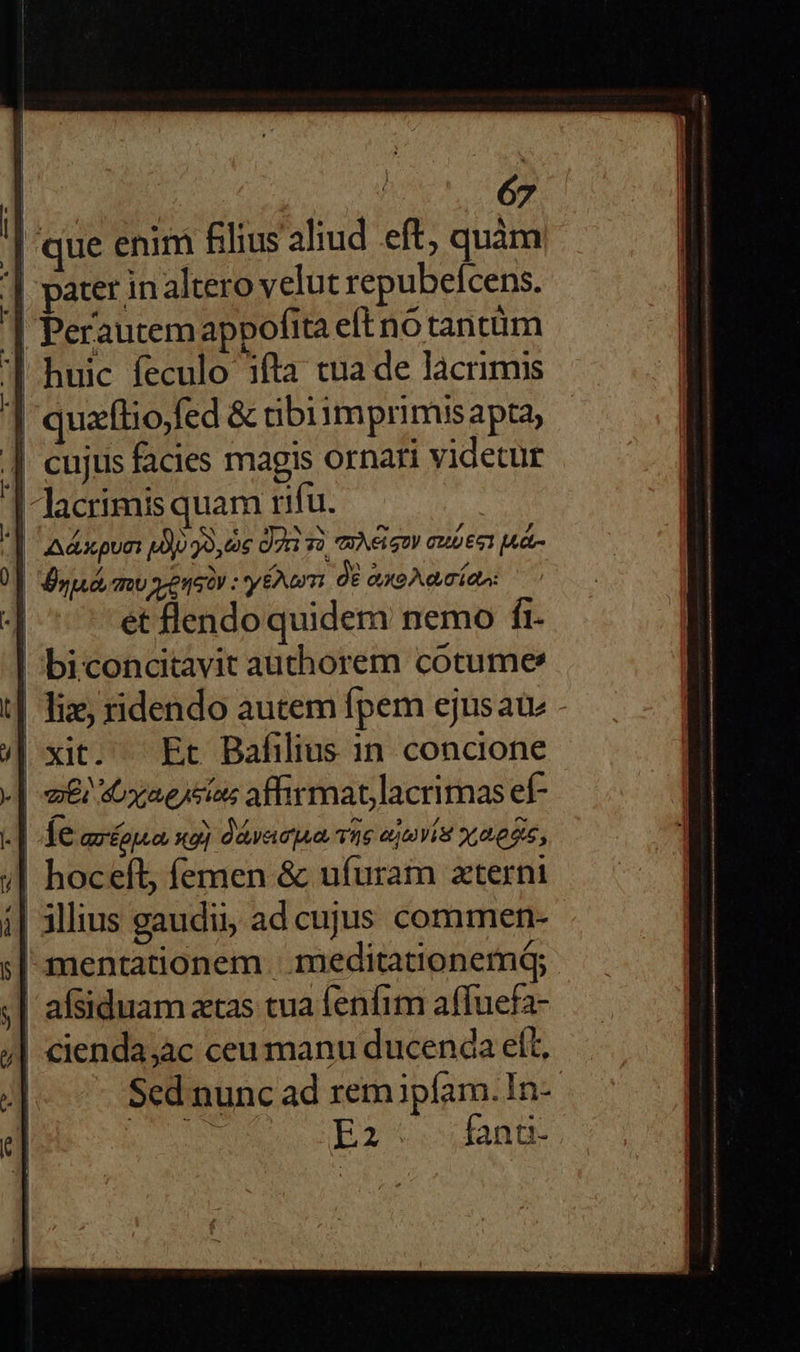 67
que enim filius aliud eſt, quàm
pater in altero velut repubeſcens.
Per autem appoſita eſt nō tantùm
huic ſeculo iſta tua de lacrimis
quæſtio, ſed & tibi imprimis apta,
cujus facies magis ornari videtur
lacrimis quam riſu.
Δάκρυσι μὲν γὸ, ὡς ἐπὶ τὸ πλεῖςον σύνεςι μά-
θημά που χρηςὸν : γέλωτι δὲ ἀκολασία:
et flendo quidem nemo ſi-
bi concitavit authorem cōtume-
liæ, ridendo autem ſpem ejus au-
xit. Et Baſilius in concione
περὶ εὐχαριςίας affirmat, lacrimas eſ-
ſe σπέρμα καὶ δάνεισμα τῆς αἰωνίου χαρᾶς,
hoc eſt, ſemen & uſuram æterni
illius gaudii, ad cujus commen-
mentationem meditationemq́;
aſsiduam ætas tua ſenſim aſſuefa-
cienda, ac ceu manu ducenda eſt.
Sed nunc ad rem ipſam. In-
E2 fanti-